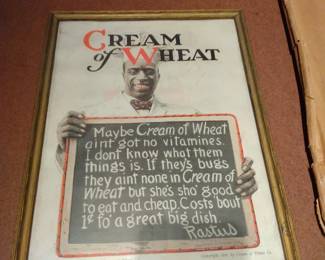 CREAM
of WHEAT
Maybe Cream of Wheat
aint got no vitamines.
I dont know what them
things is. If they's bugs
they aint none in Cream of
Wheat but she's sho' good
to eat and cheap. Costs 'bout
1¢ fo' a great big dish.
Rastus